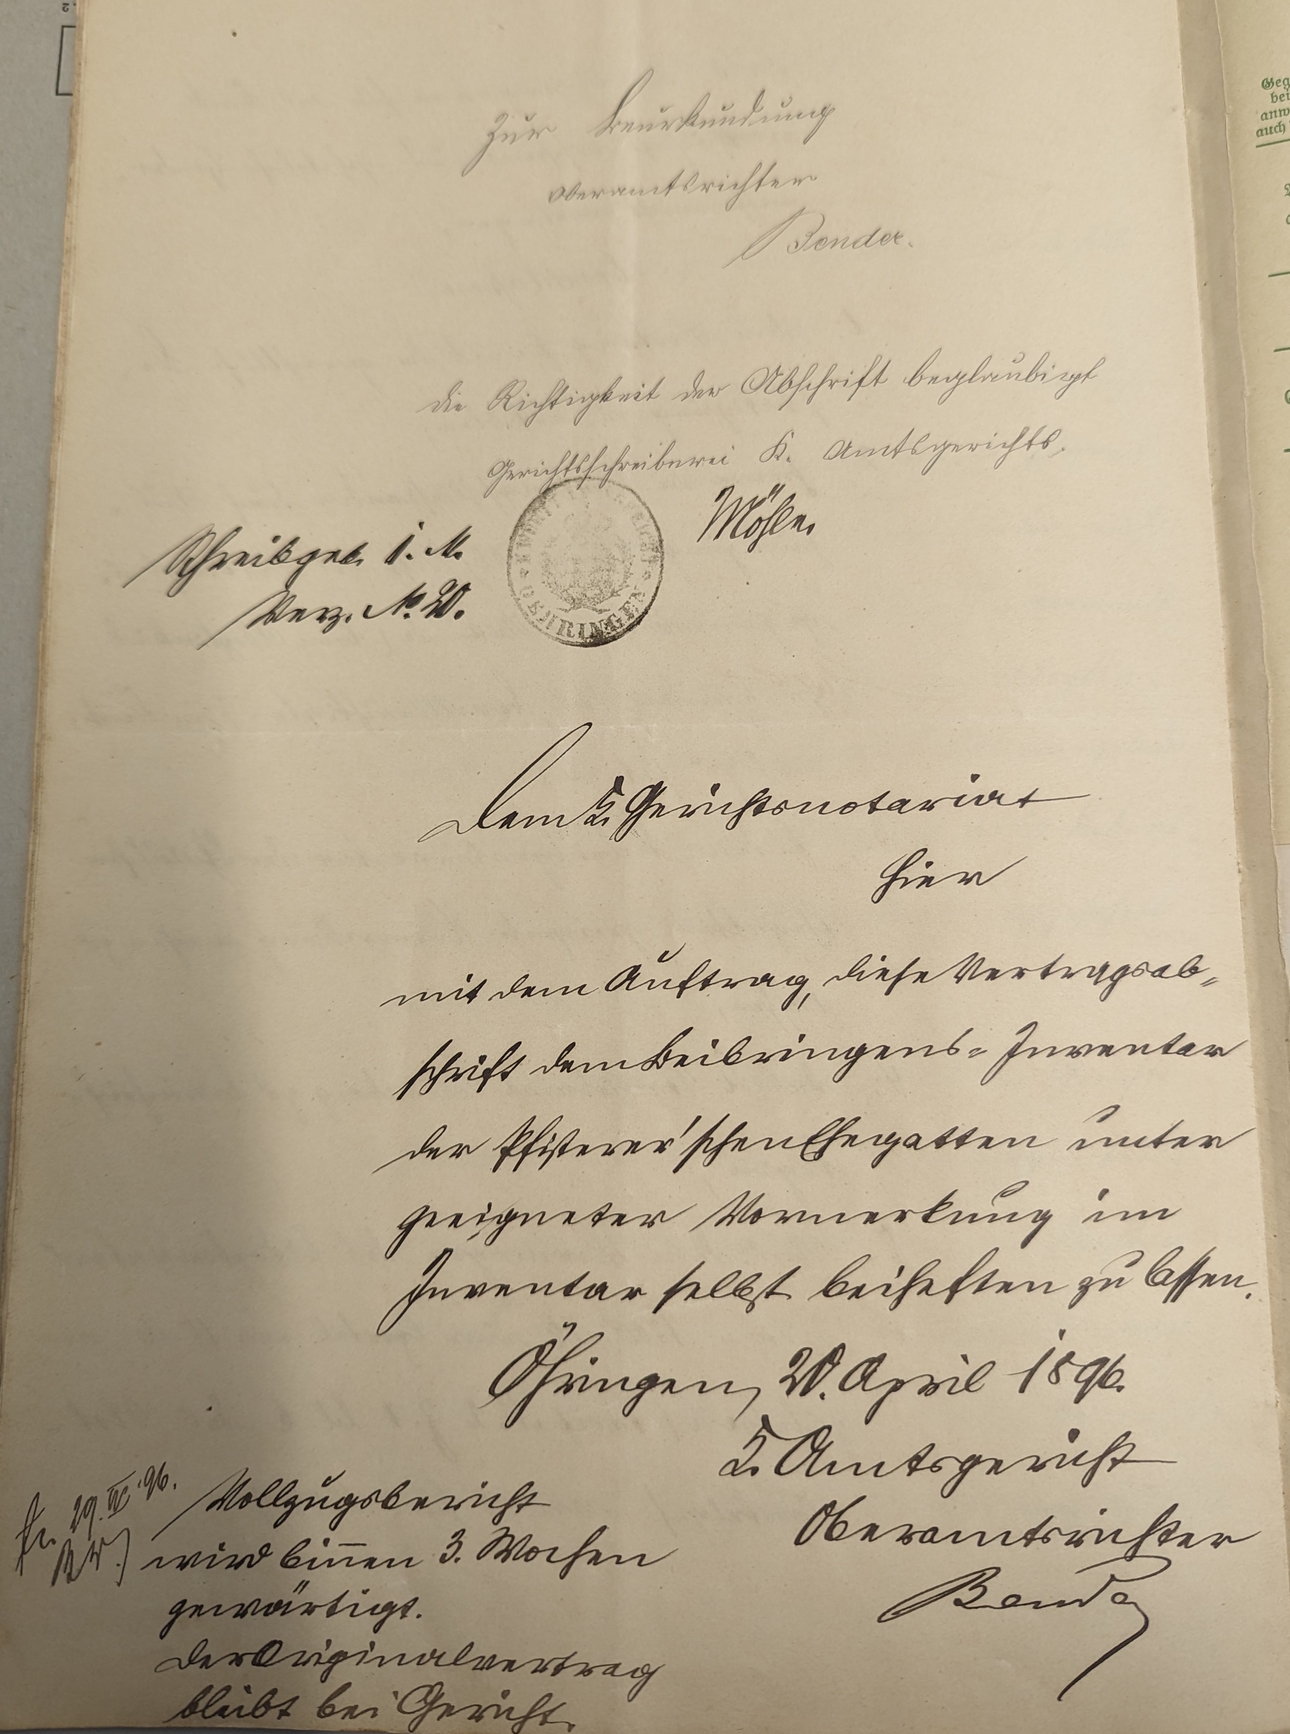 Zur Beurkundung
Oberamtsrichter
Bender.
die Richtigkeit der Abschrift beglaubigt
Gerichtsschreiberei K. Amtsgerichts.
Mösle.
Schreibgeb. 1. M.
Verz. No. 20.
OEHRINGEN
Dem K. Gerichtsnotariat
hier
mit dem Auftrag, diese Vertragsab-
schrift dem Beibringens-Inventar
der Pfisterer'schen Ehegatten unter
geeigneter Vormerkung im
Inventar selbst beiheften zu lassen.
Öhringen, 20. April 1896.
K. Amtsgericht
Oberamtsrichter
Bender
Vollzugsbericht
wird binnen 3. Wochen
gewärtigt.
Der Originalvertrag
bleibt bei Gericht.
29. IV '96.